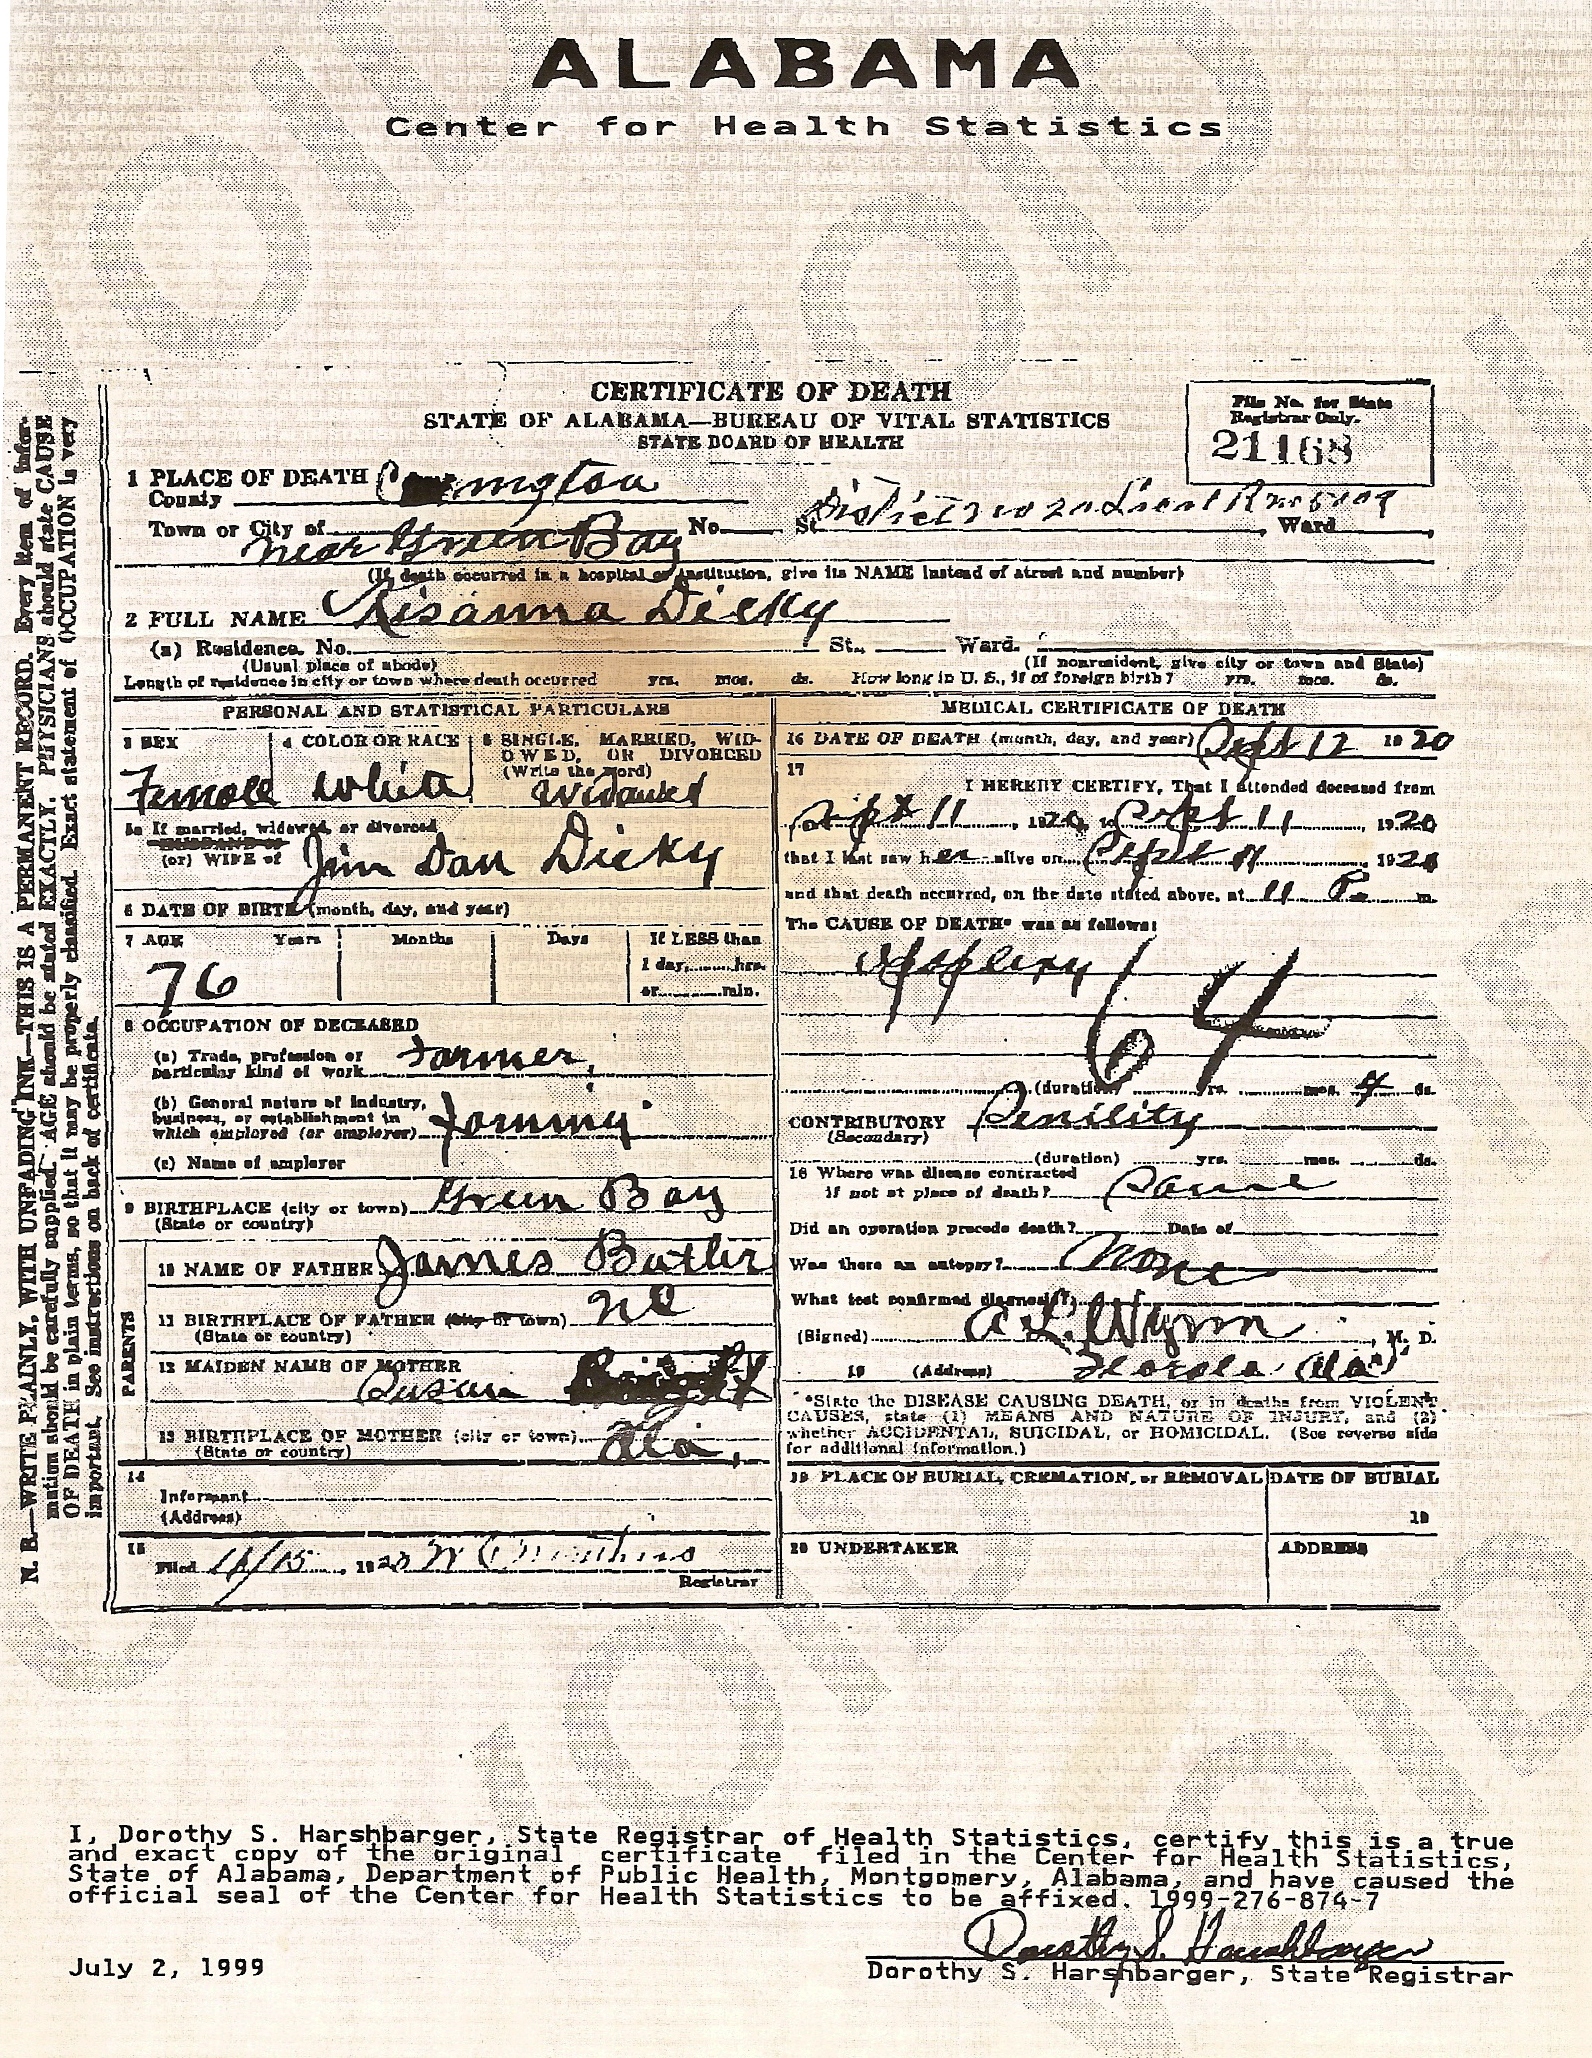 ALABAMA
Center for Health Statistics
CERTIFICATE OF DEATH
STATE OF ALABAMA—BUREAU OF VITAL STATISTICS
STATE BOARD OF HEALTH
File No. for State
Registrar Only.
21168
1 PLACE OF DEATH
County Covington
Town or City of near Green Bay No. St. District Ward
(If death occurred in a hospital or institution, give its NAME instead of street and number)
2 FULL NAME Lisanna Dicky
(a) Residence. No. St., Ward.
(Usual place of abode) (If nonresident, give city or town and State)
Length of residence in city or town where death occurred yrs. mos. ds. How long in U. S., if of foreign birth? yrs. mos. ds.
PERSONAL AND STATISTICAL PARTICULARS
3 SEX
Female
4 COLOR OR RACE
White
5 SINGLE, MARRIED, WID-
OWED, OR DIVORCED
(Write the word)
Widowed
5a If married, widowed, or divorced
HUSBAND of
(or) WIFE of Jim Dan Dicky
6 DATE OF BIRTH (month, day, and year)
7 AGE Years Months Days If LESS than
1 day, hrs.
or min.
76
8 OCCUPATION OF DECEASED
(a) Trade, profession or
particular kind of work farmer
(b) General nature of industry,
business, or establishment in
which employed (or employer) farming
(c) Name of employer
9 BIRTHPLACE (city or town) Green Bay
(State or country)
PARENTS
10 NAME OF FATHER James Butler
11 BIRTHPLACE OF FATHER (city or town) NC
(State or country)
12 MAIDEN NAME OF MOTHER
Susan
13 BIRTHPLACE OF MOTHER (city or town) Ala.
(State or country)
14
Informant
(Address)
15
Filed 1920
Registrar
MEDICAL CERTIFICATE OF DEATH
16 DATE OF DEATH (month, day, and year) Sept 12 1920
17
I HEREBY CERTIFY, That I attended deceased from
Sept 11, 1920, to Sept 11, 1920
that I last saw her alive on Sept 11, 1920
and that death occurred, on the date stated above, at 11 P. m.
The CAUSE OF DEATH* was as follows:
Applexy
64
(duration) yrs. mos. ds.
CONTRIBUTORY Senility
(Secondary)
(duration) yrs. mos. ds.
18 Where was disease contracted
if not at place of death? Same
Did an operation precede death? Date of
Was there an autopsy? None
What test confirmed diagnosis?
(Signed) A L Wynn, M. D.
19 (Address) Florala Ala
*State the DISEASE CAUSING DEATH, or in deaths from VIOLENT
CAUSES, state (1) MEANS AND NATURE OF INJURY, and (2)
whether ACCIDENTAL, SUICIDAL, or HOMICIDAL. (See reverse side
for additional information.)
19 PLACE OF BURIAL, CREMATION, or REMOVAL
DATE OF BURIAL
19
20 UNDERTAKER
ADDRESS
N. B.—WRITE PLAINLY, WITH UNFADING INK—THIS IS A PERMANENT RECORD. Every item of infor-
mation should be carefully supplied. AGE should be stated EXACTLY. PHYSICIANS should state CAUSE
OF DEATH in plain terms, so that it may be properly classified. Exact statement of OCCUPATION is very
important. See instructions on back of certificate.
I, Dorothy S. Harshbarger, State Registrar of Health Statistics, certify this is a true
and exact copy of the original certificate filed in the Center for Health Statistics,
State of Alabama, Department of Public Health, Montgomery, Alabama, and have caused the
official seal of the Center for Health Statistics to be affixed. 1999-276-874-7
Dorothy S. Harshbarger
July 2, 1999
Dorothy S. Harshbarger, State Registrar
VOID